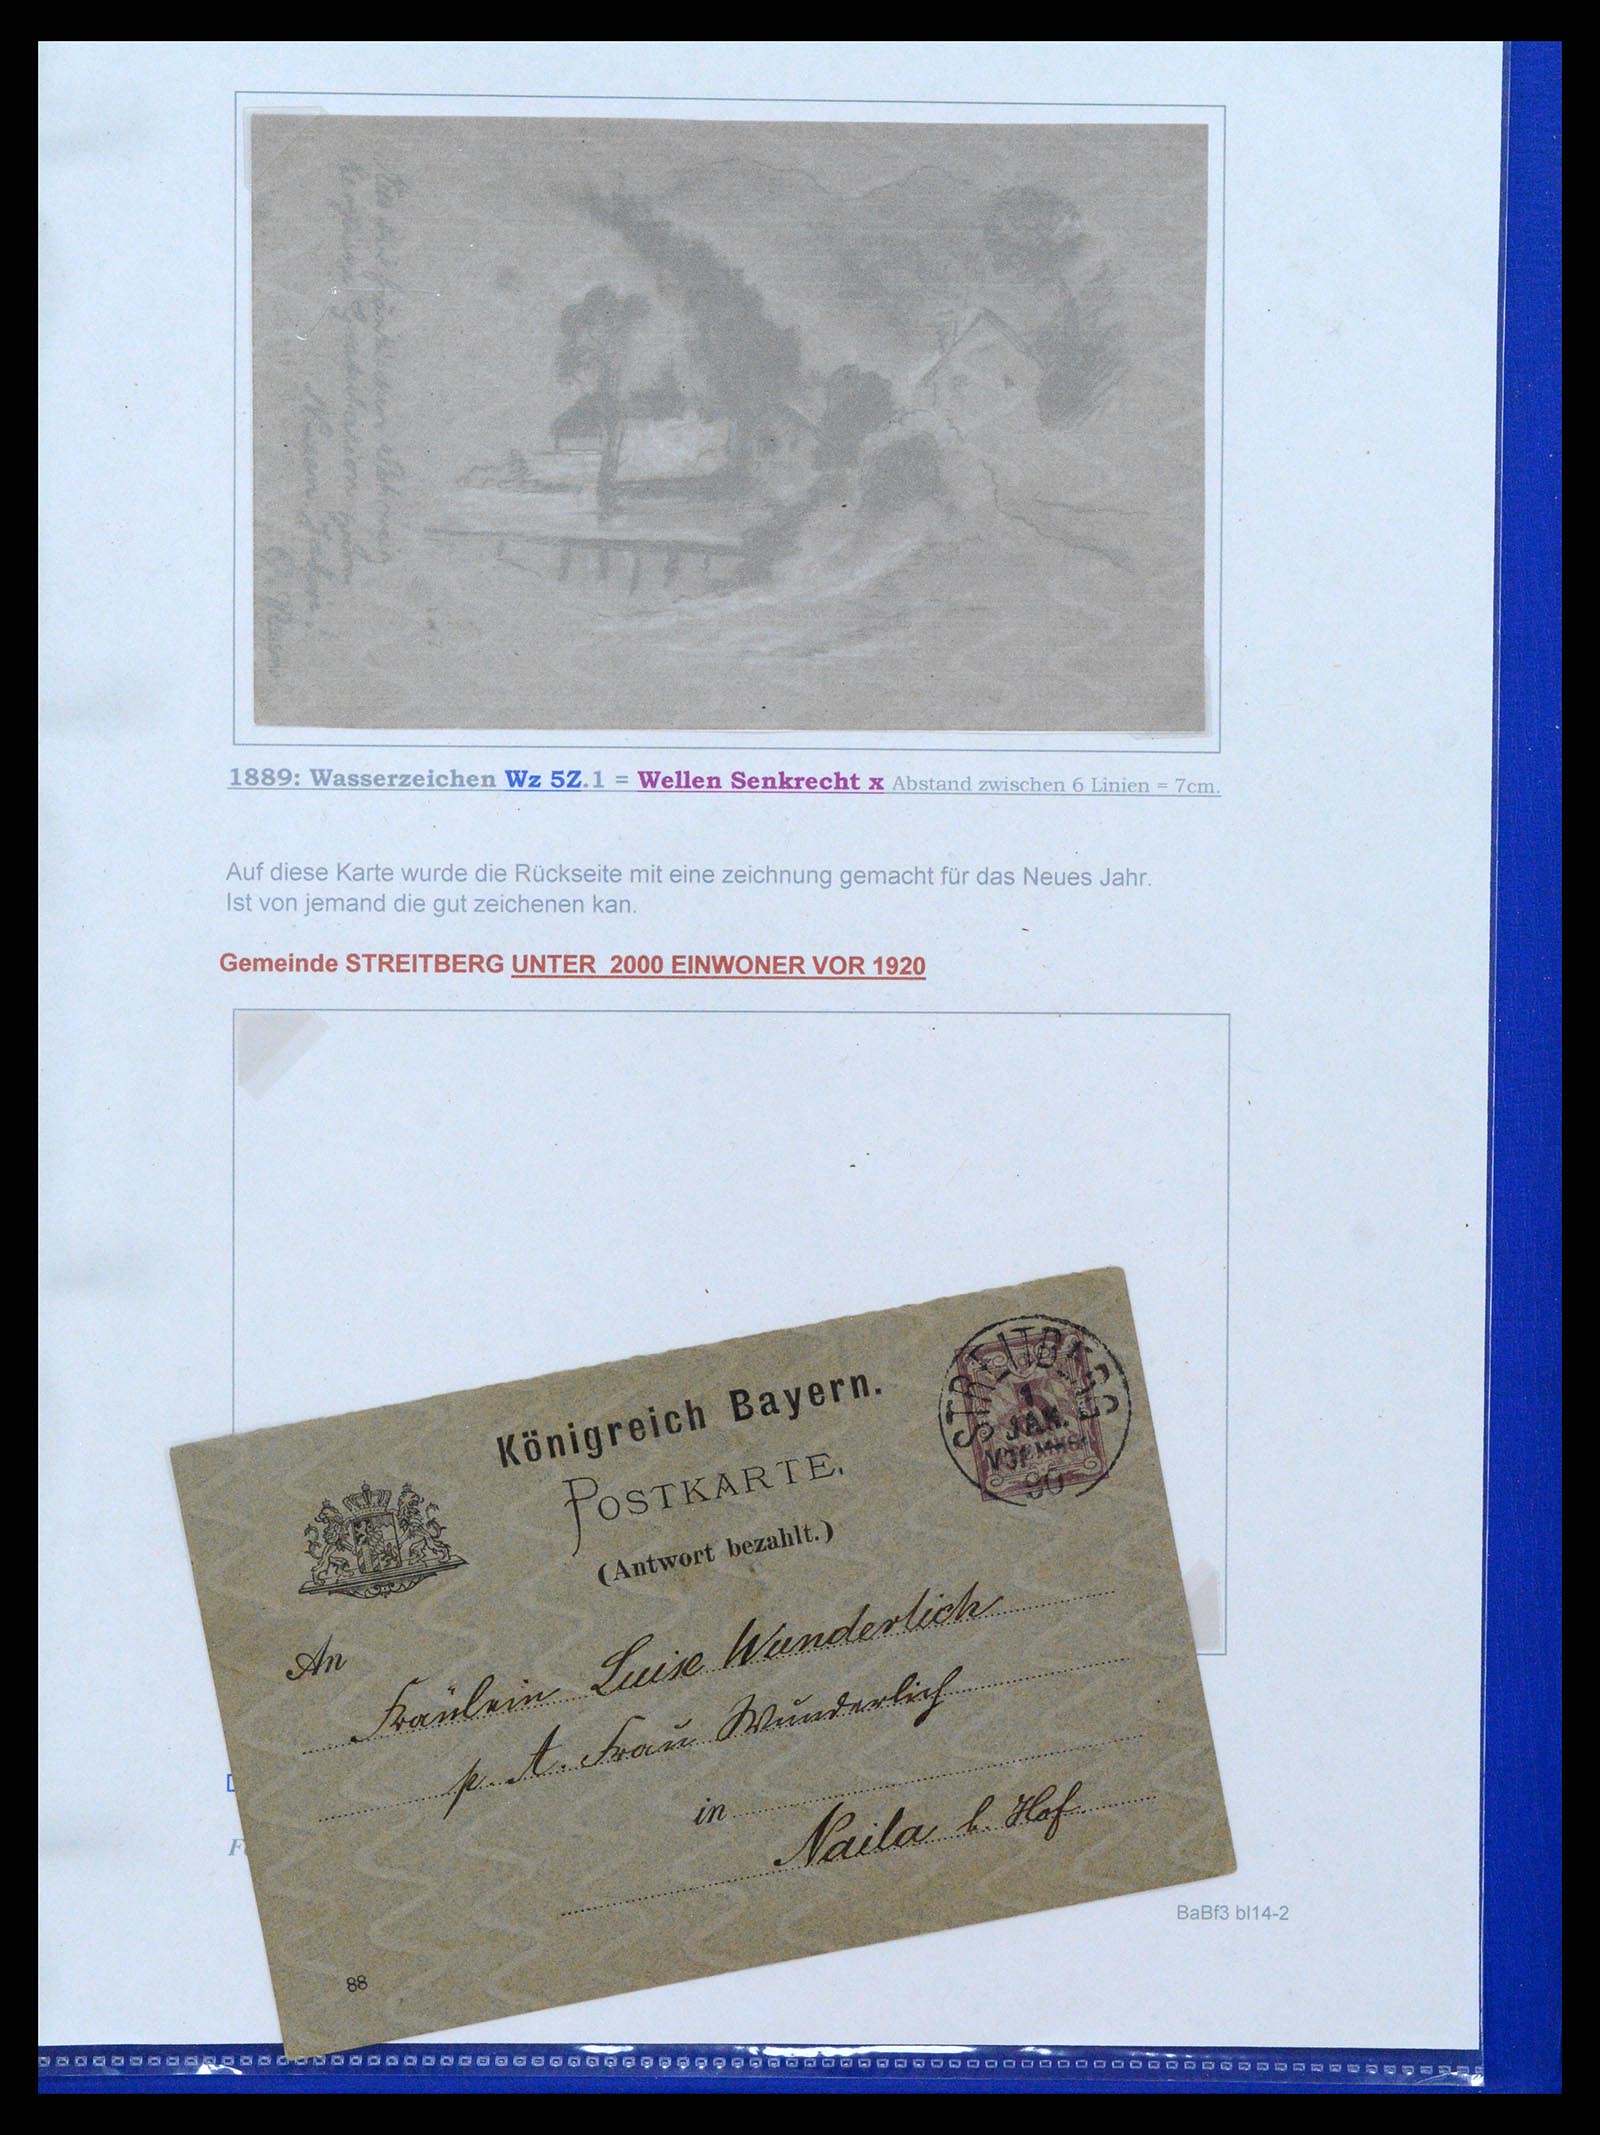 1889: Wasserzeichen Wz 5Z.1 = Wellen Senkrecht x Abstand zwischen 6 Linien = 7cm.
Auf diese Karte wurde die Rückseite mit eine zeichnung gemacht für das Neues Jahr.
Ist von jemand die gut zeichenen kan.
Gemeinde STREITBERG UNTER 2000 EINWONER VOR 1920
STREITBERG
1
JAN.
90
Königreich Bayern.
POSTKARTE.
(Antwort bezahlt.)
An
Fräulein Luise Wunderlich
p. A. Frau Wunderlich
in
Naila b. Hof
88
BaBf3 bl14-2